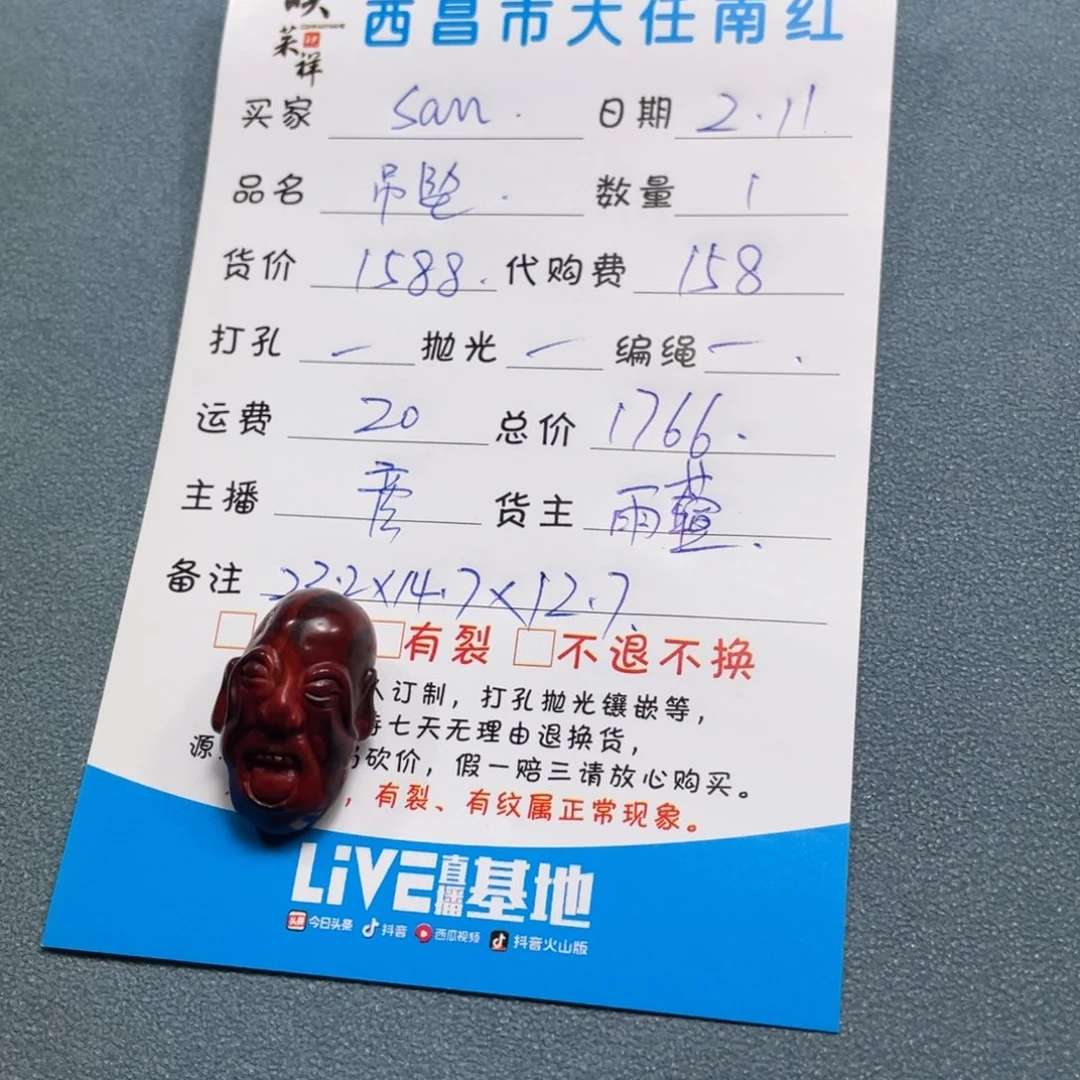 莱祥
西昌市大任南红
买家 San. 日期 2.11.
品名 吊坠. 数量 1
货价 1588. 代购费 158
打孔 一 抛光 一 编绳 一.
运费 20 总价 1766.
主播 彦 货主 雨萱.
备注 22.2×14.7×12.7
有裂 不退不换
订制，打孔抛光镶嵌等，
七天无理由退换货，
源 砍价，假一赔三请放心购买。
，有裂、有纹属正常现象。
LiVE直播基地
头条 今日头条 抖音 西瓜视频 抖音火山版